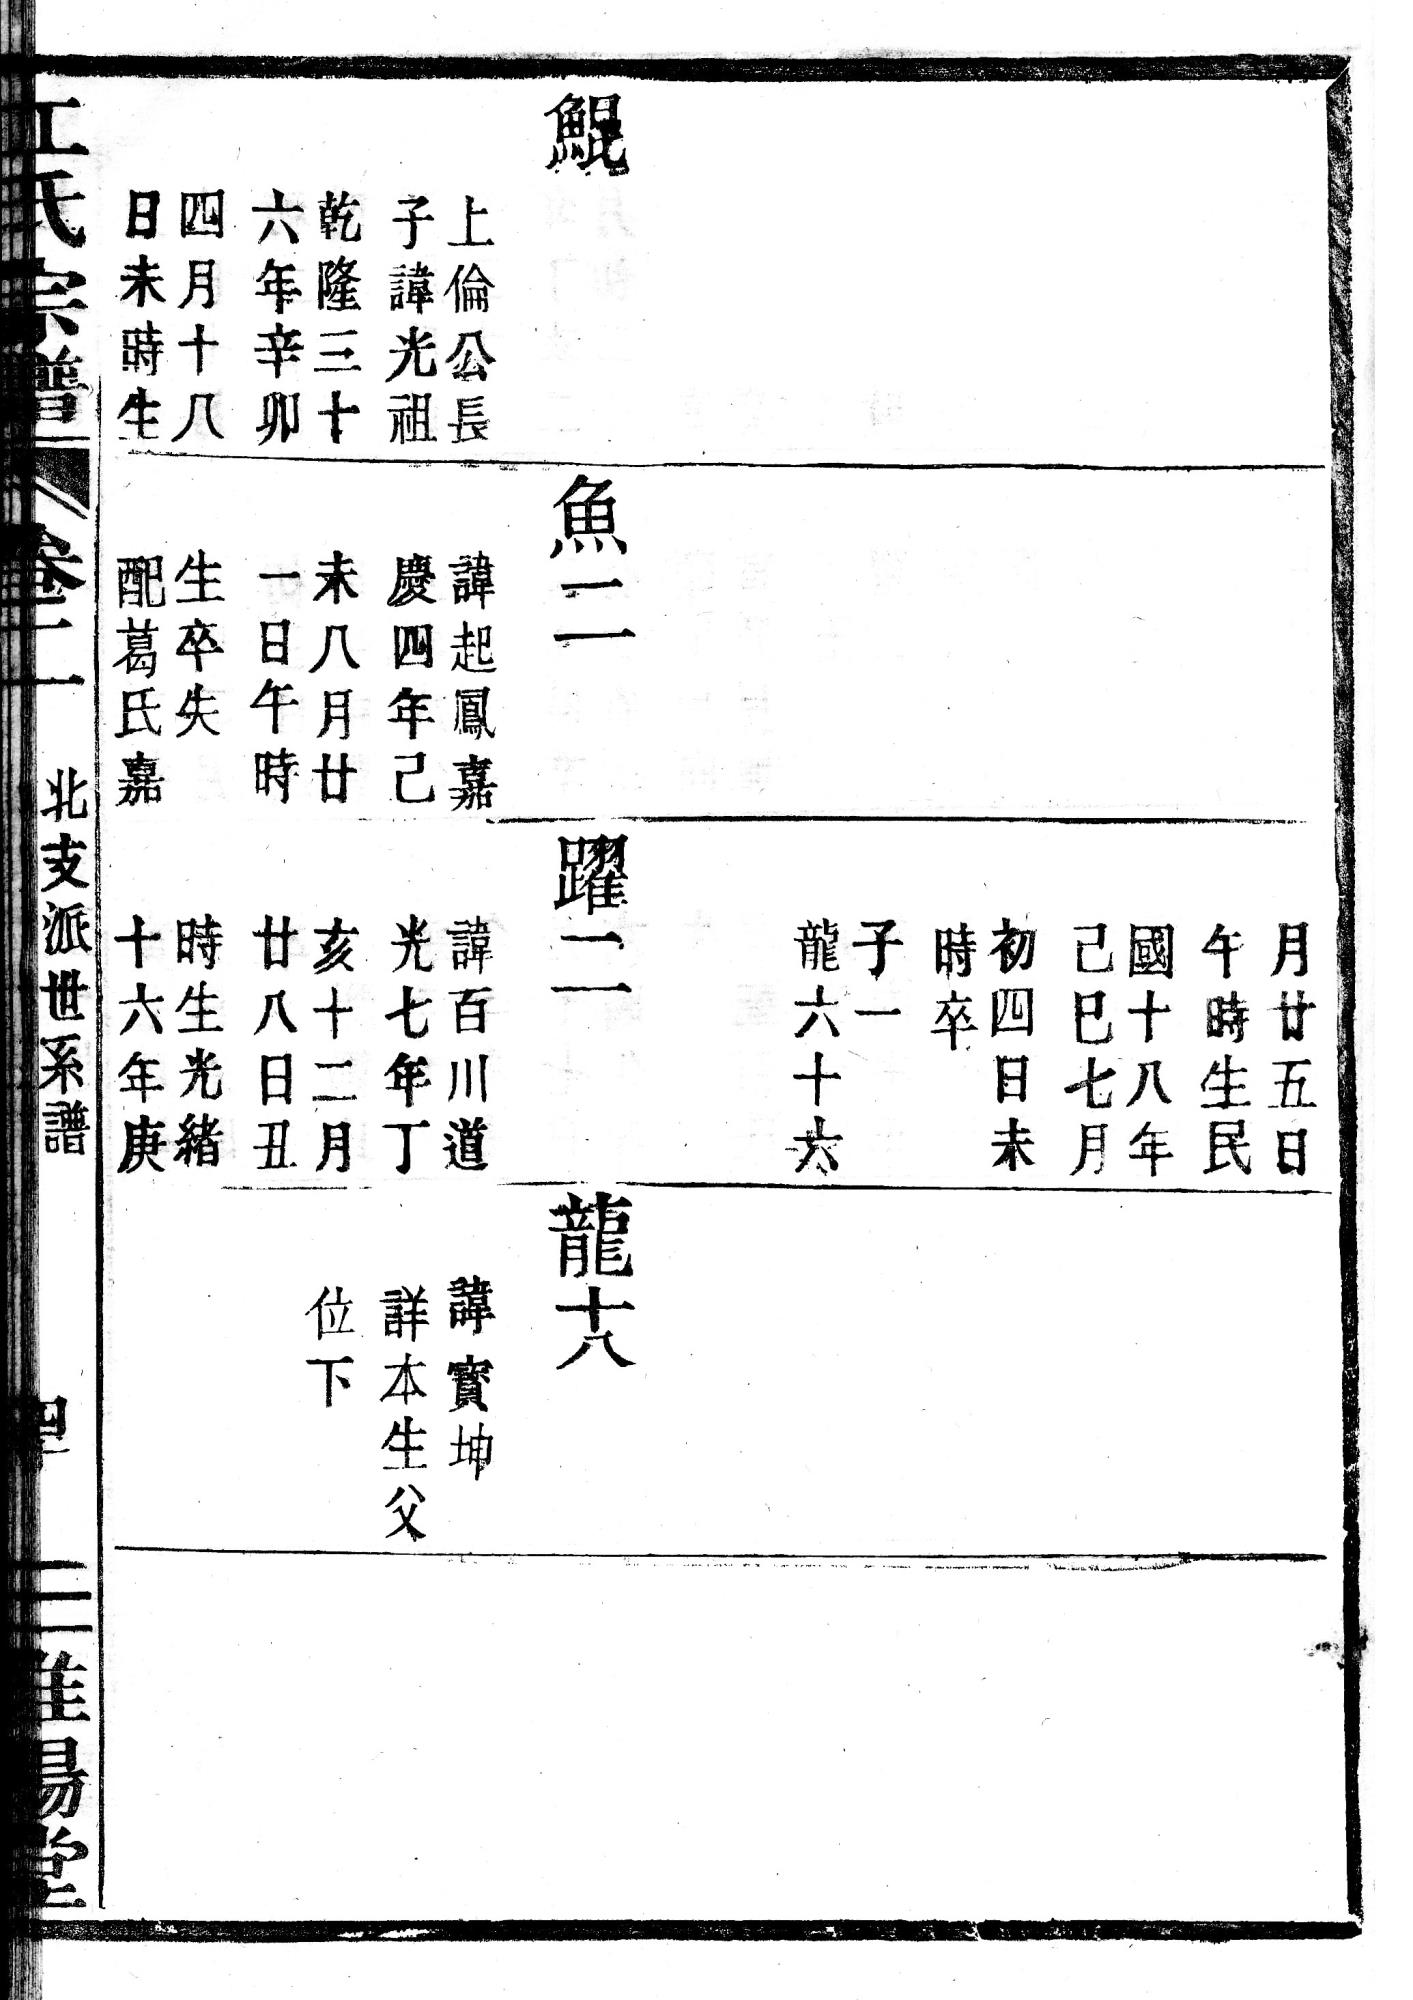 鯤
上倫公長
子諱光祖
乾隆三十
六年辛卯
四月十八
日未時生
魚二
諱起鳳嘉
慶四年己
未八月廿
一日午時
生卒失
配葛氏嘉
月廿五日
午時生民
國十八年
己巳七月
初四日未
時卒
子一
龍六十六
躍二
諱百川道
光七年丁
亥十二月
廿八日丑
時生光緒
十六年庚
龍十八
諱寶坤
詳本生父
位下
江氏宗譜
卷二
北支派世系譜
堂